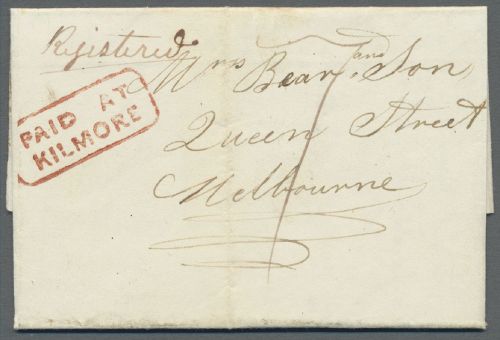 Registered.
Mrs Bear and Son
Queen Street
Melbourne
PAID AT
KILMORE